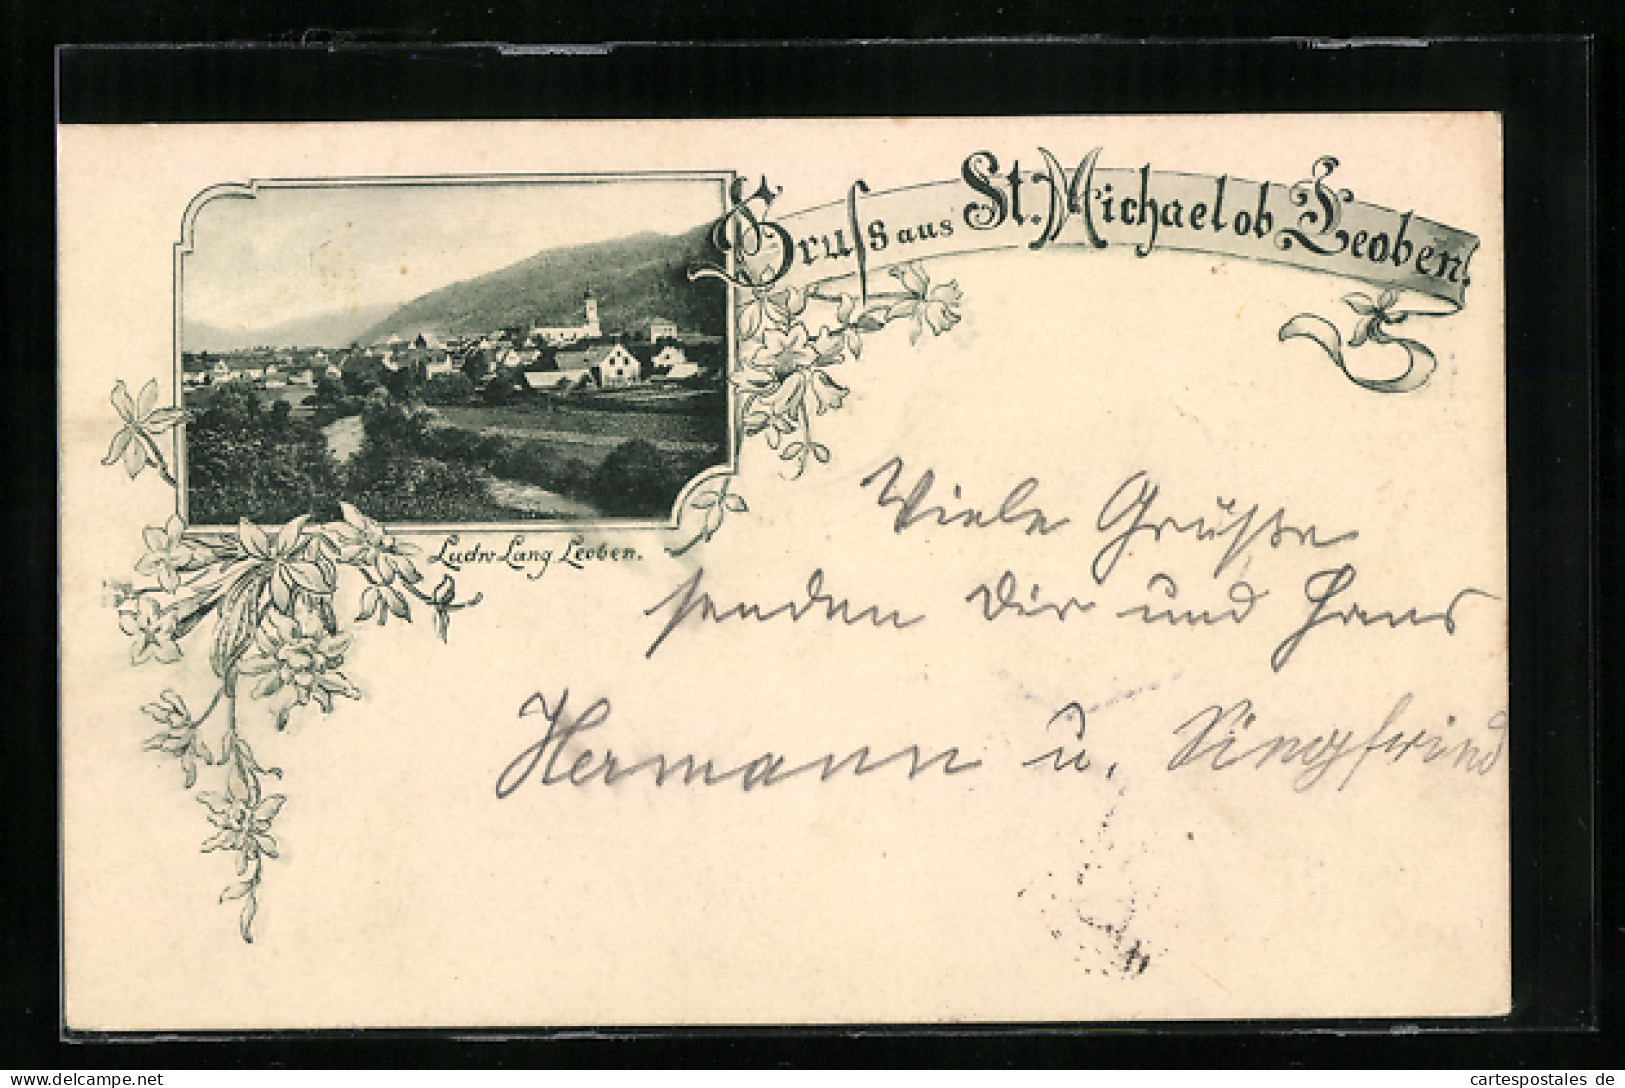 Gruss aus St. Michael ob Leoben.
Ludw. Lang Leoben.
Viele Grüße
senden Dir und Hans
Hermann u.
cartespostales de